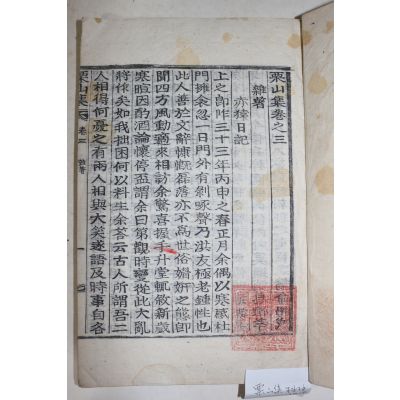 栗山集卷之三
雜著
赤猿日記
上之卽阼三十三年丙申之春正月余偶以寒慼杜
門擁衾忽一日門外有剝啄聲乃洪友極老鍾性也
此人善於文辭慷慨磊落亦不爲世俗媚姸之態卽
聞四方風動適來相訪余驚喜握手升堂輒敘新歲
寒暄因酌酒論懷停盃謂余曰第觀時變從此大亂
將作矣如我拙困何以料生余荅云古人所謂吾二
人相得何憂之有兩人相與大笑遂語及時事自各
栗山集 卷三 雜著 一